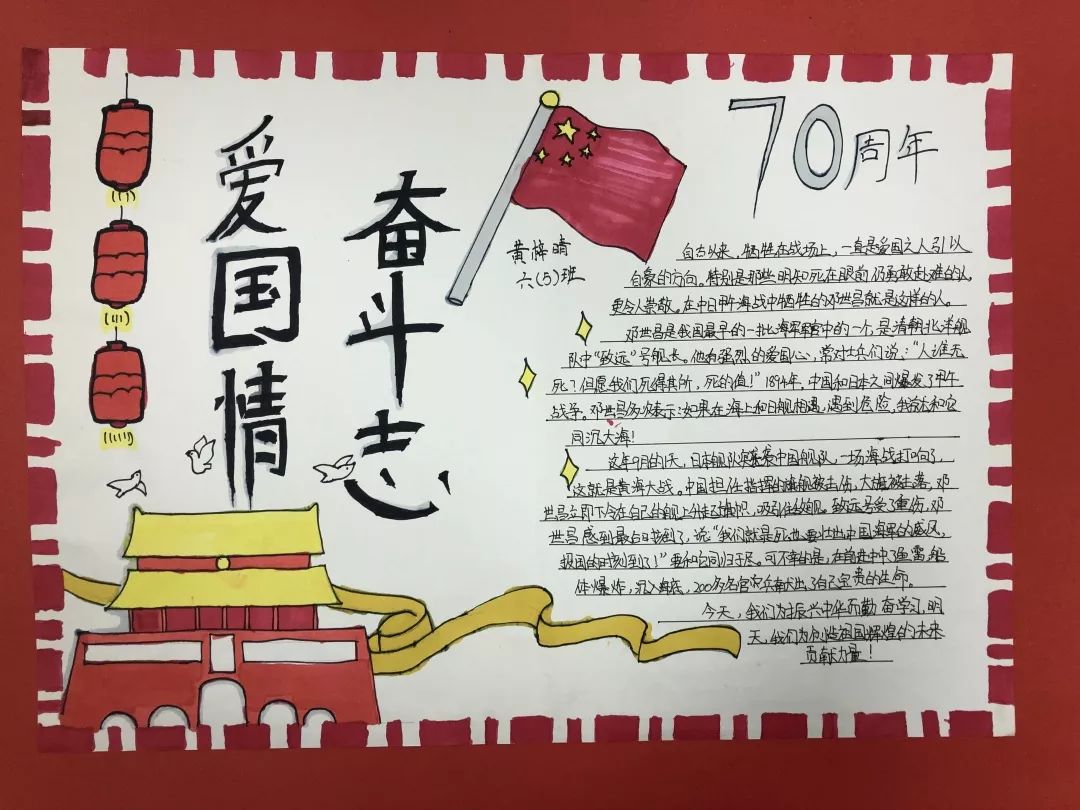 爱国情
奋斗志
70周年
黄梓晴
六(5)班
自古以来，牺牲在战场上，一直是爱国之人引以
自豪的方向。特别是那些明知死在眼前仍勇敢赴难的人
更令人崇敬。在中日甲午海战中牺牲的邓世昌就是这样的人。
邓世昌是我国最早的一批海军军官中的一个，是清朝北洋舰
队中“致远”号舰长。他有强烈的爱国心，常对士兵们说：“人谁无
死？但愿我们死得其所，死的值！”1894年，中国和日本之间爆发了甲午
战争。邓世昌多次表示：如果在海上和日舰相遇，遇到危险，我就和它
同沉大海！
这年9月的1天，日本舰队突袭中国舰队，一场海战打响了，
这就是黄海大战。中国担任指挥的旗舰被击伤，大旗被击落，邓
世昌立即下令在自己的舰上升起旗帜，吸引住敌舰。致远号受了重伤，邓
世昌感到最后时刻到了，说：“我们就是死，也要壮出中国海军的威风，
报国的时刻到了！”要和它同归于尽。可不幸的是，在前进中中了鱼雷，船
体爆炸，沉入海底，200多名官兵献出了自己宝贵的生命。
今天，我们为振兴中华而勤奋学习，明
天，我们为创造祖国辉煌的未来
贡献力量！